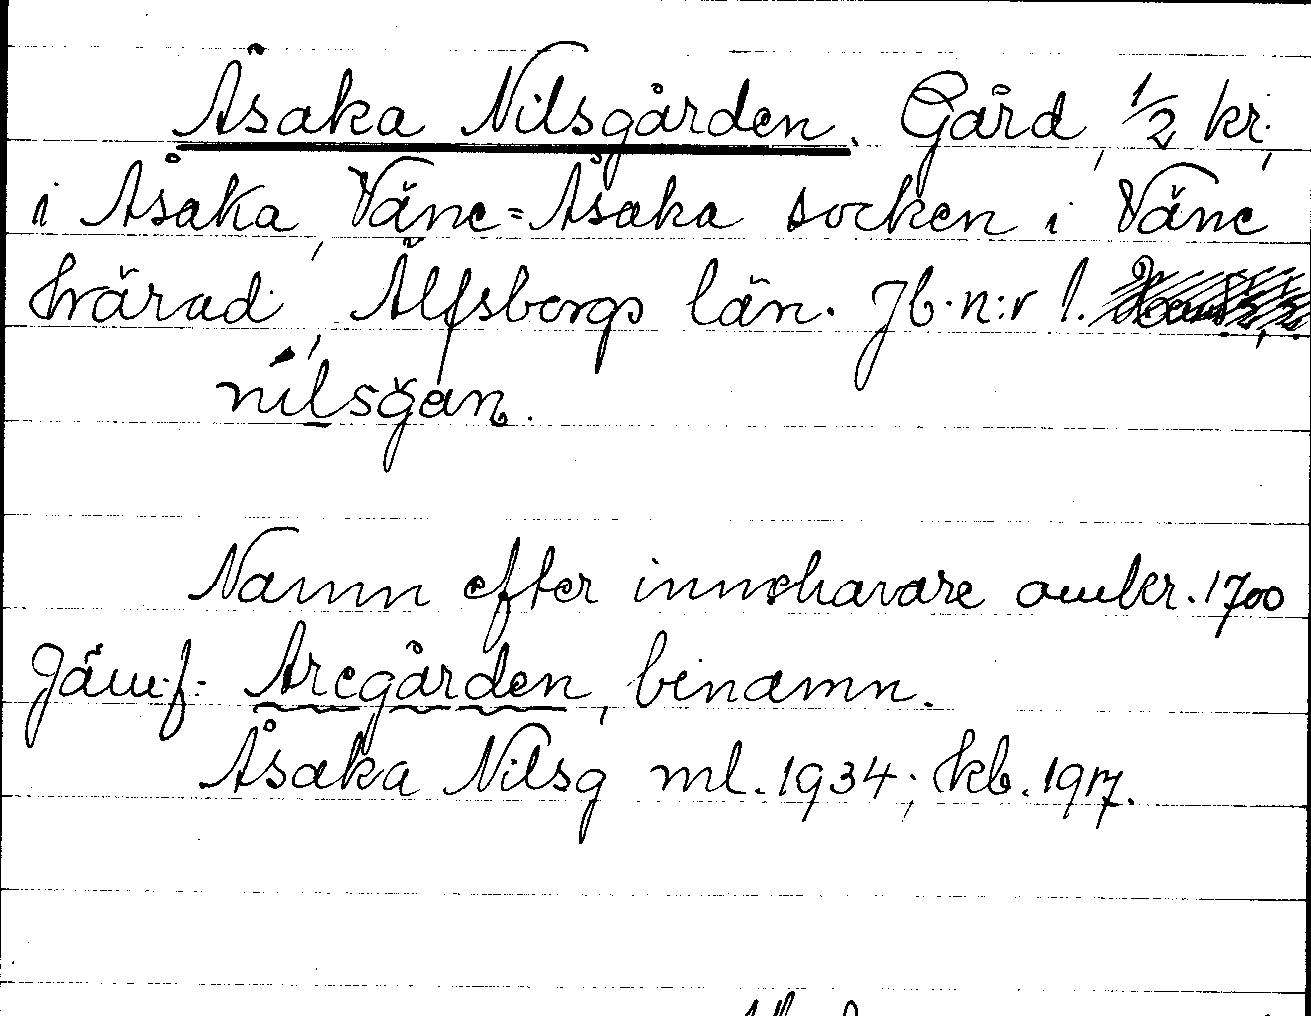 Åsaka Nilsgården. Gård, 1/2 kr,
i Åsaka, Väne-Åsaka socken i Väne
härad, Älfsborgs län. Jb. n:r 1.
nilsgan.
Namn efter innehavare omkr. 1700
Jämf. Aregården, binamn.
Åsaka Nilsg ml. 1934; kb. 1917.